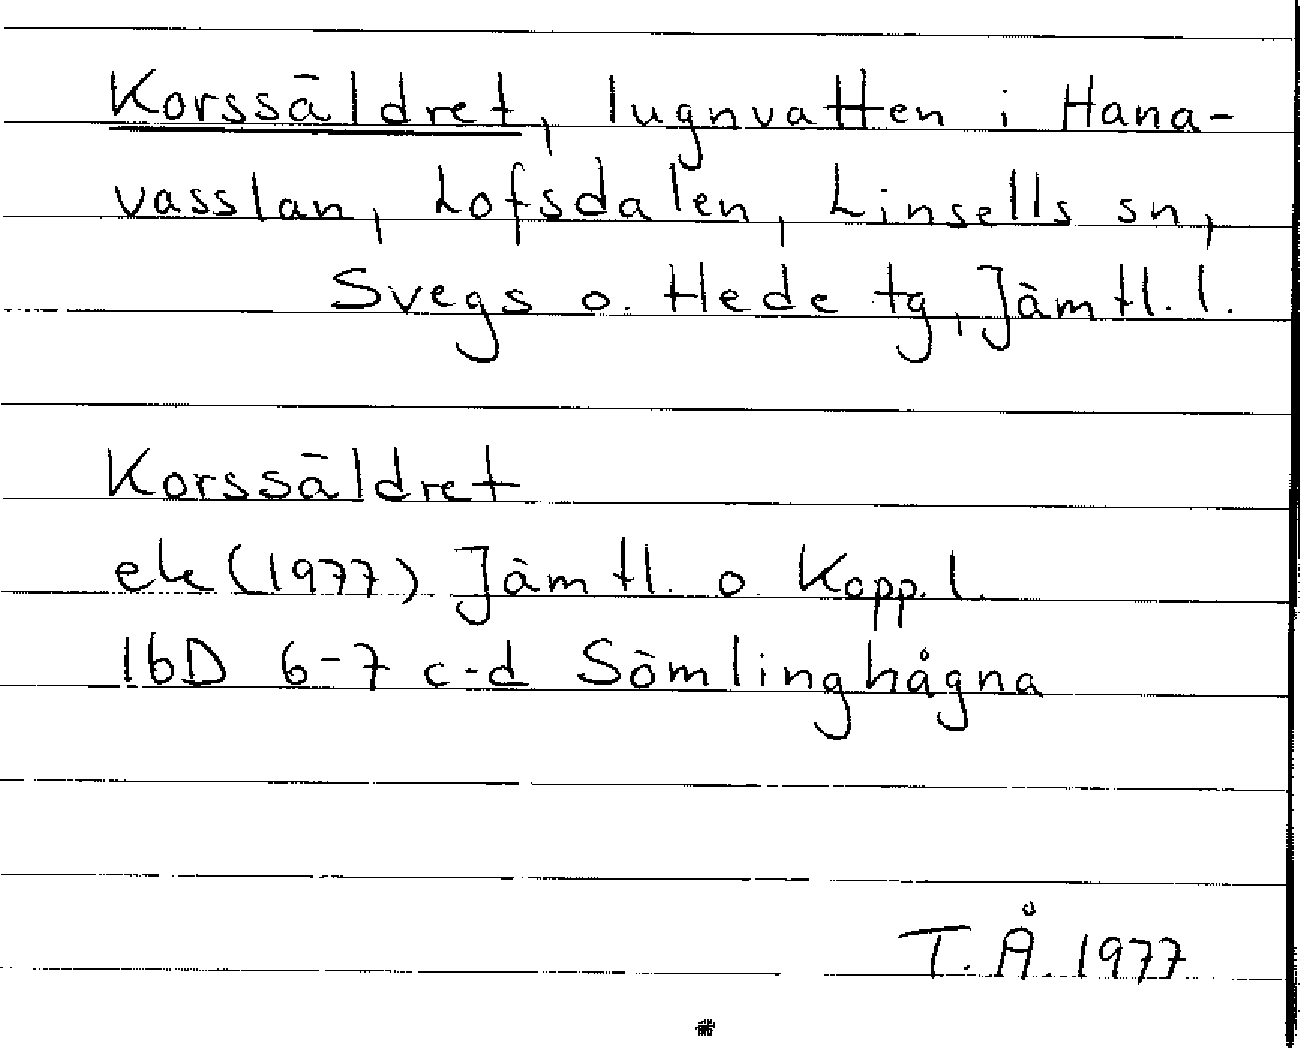 Korssäldret, lugnvatten i Hana-
vasslan, Lofsdalen, Linsells sn,
Svegs o. Hede tg, Jämtl. l.
Korssäldret
ek (1977) Jämtl. o. Kopp. l.
16D 6-7 c-d Sömlinghågna
T.Å. 1977